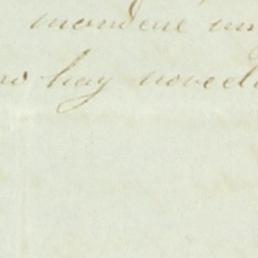 mandeni un
no hay noveda